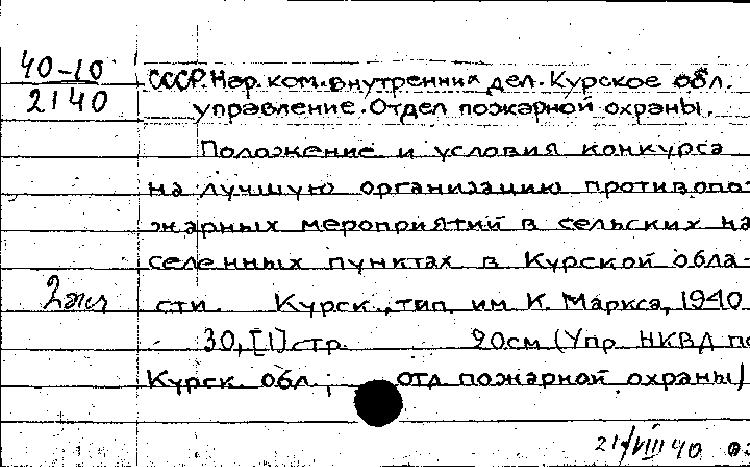 40-10
2140
СССР. Нар. ком. внутренних дел. Курское обл.
управление. Отдел пожарной охраны.
Положение и условия конкурса
на лучшую организацию противопо-
жарных мероприятий в сельских на
селенных пунктах в Курской обла-
2экз
сти. Курск, тип. им К. Маркса, 1940.
30, [1] стр. 20см (Упр. НКВД по
Курск. обл.; отд. пожарной охраны)
21/VIII 40